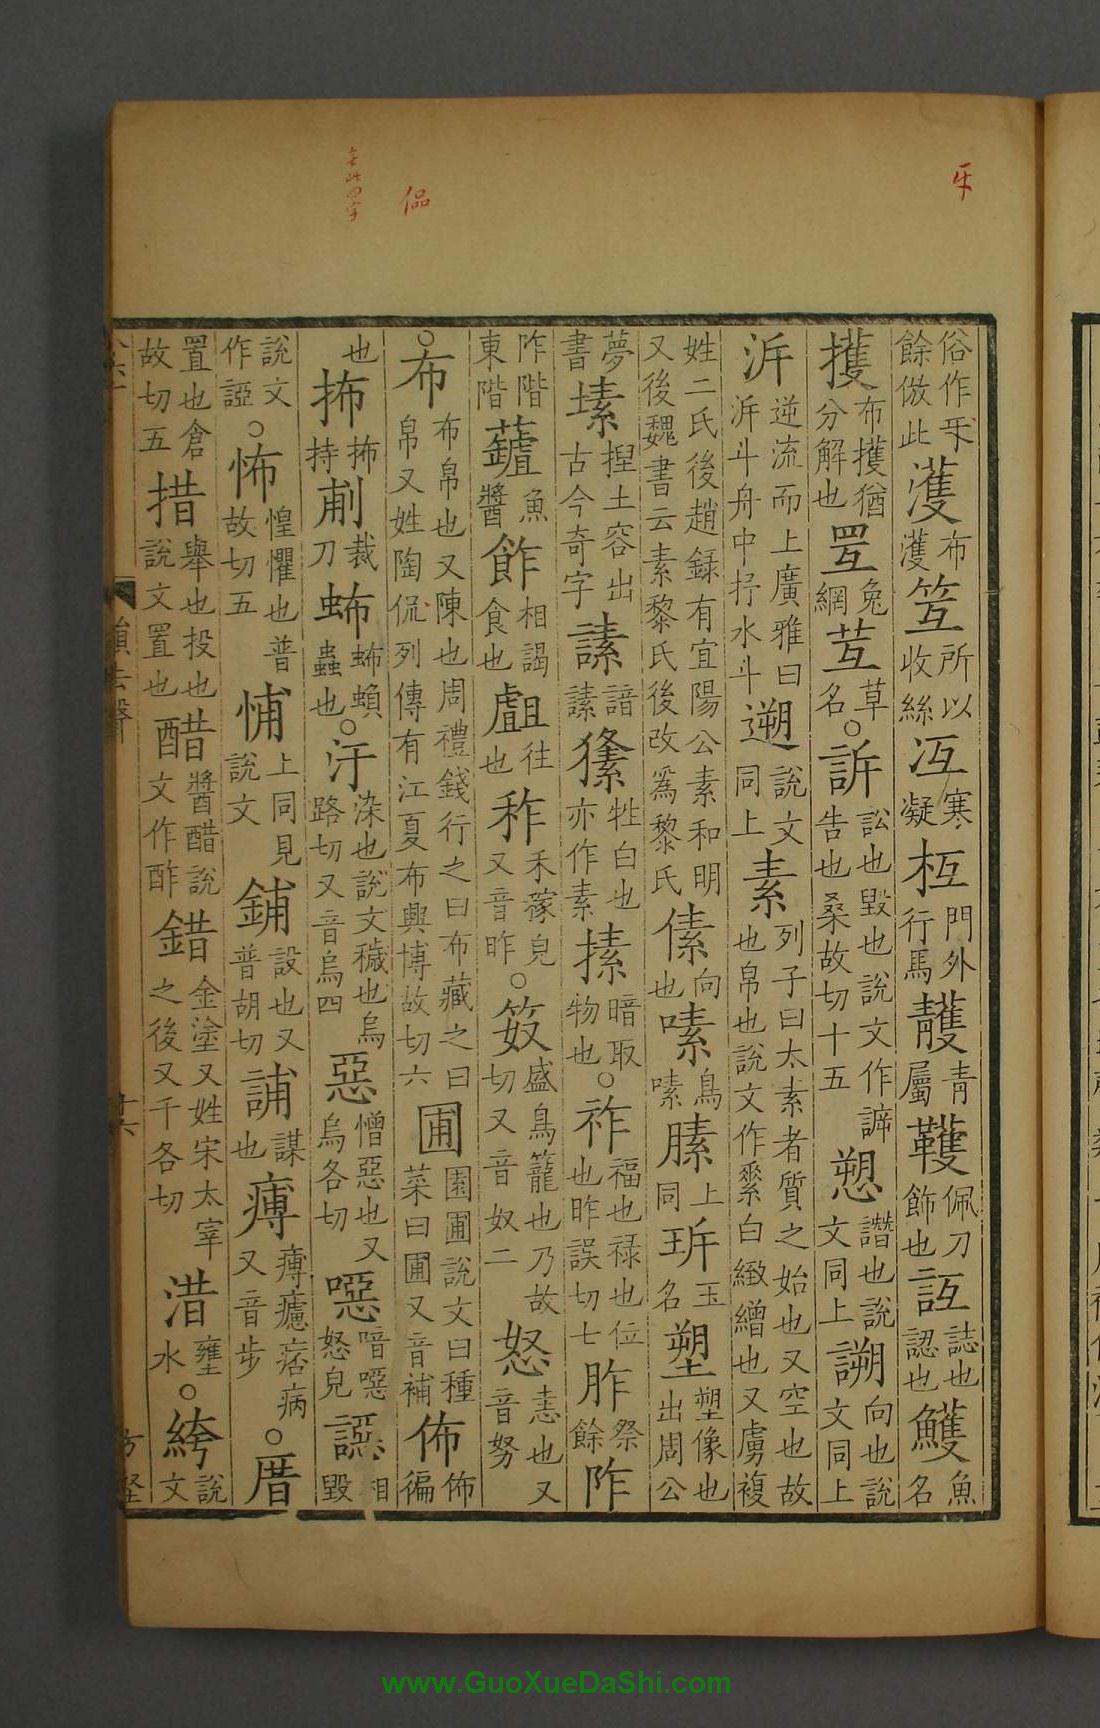 俗作㸦餘倣此濩布濩笠所以收絲冱寒凝枑門外行馬頀青屬韄佩刀飾也䛎誌也認也鱯魚名
擭布擭猶分解也罝兔網苙草名○訴訟也毀也說文作𧪜告也桑故切十五愬譖也說文同上謝向也說文同上
泝逆流而上廣雅曰泝斗舟中抒水斗遡說文同上素列子曰太素者質之始也又空也故也帛也說文作𦃃白緻繒也又虜複
姓二氏後趙錄有宜陽公素和明又後魏書云素黎氏後改爲黎氏傃向也嗉鳥嗉膆上同㺪玉名塑塑像也出周公
夢書㙞捏土容出古今奇字𧫷諳𧫷㺐牲白也亦作素㨞暗取物也○祚福也祿也位也昨誤切七胙祭餘阼
阼階東階蘆魚醬飵相謁食也䖕往也秨禾稼皃又音昨○笯盛鳥籠也乃故切又音奴二怒恚也又音努
○布布帛也又陳也周禮錢行之曰布藏之曰帛又姓陶侃列傳有江夏布興博故切六圃園圃說文曰種菜曰圃又音補佈佈徧
也抪抪持㓟裁刀𧉩𧉩蠀蟲也○汙染也說文穢也烏路切又音烏四惡憎惡也又烏各切噁喑噁怒皃䜑相毀
說文作䛩○怖惶懼也普故切五悑上同見說文鋪設也又普胡切誧謀也痡痡瘧痞病又音步○厝
置也倉故切五措舉也投也說文置也醋醬醋說文作酢錯金塗又姓宋太宰之後又千各切浩壅水○絝說文
韻去聲
廿六
方堅
㸦
侃
無此四字
www.GuoXueDaShi.com